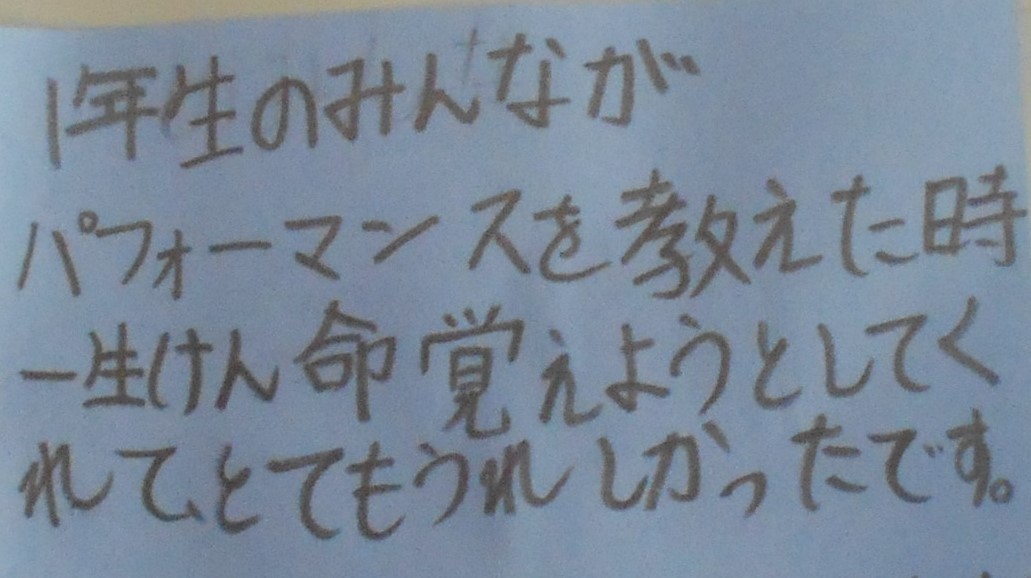 1年生のみんなが
パフォーマンスを教えた時
一生けん命覚えようとしてく
れて、とてもうれしかったです。